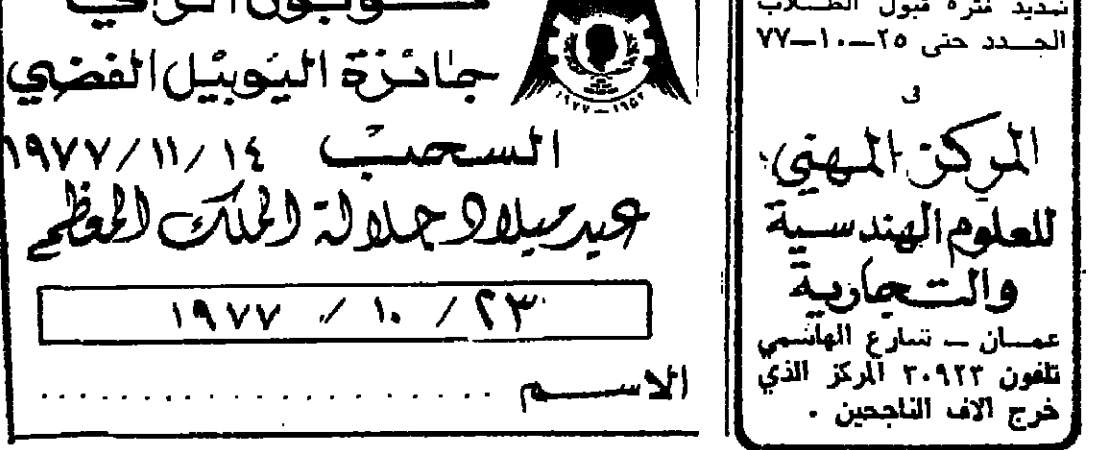 جائزة اليوبيل الفضي
١٩٥٢ — ١٩٧٧
السحب ١٤ / ١١ / ١٩٧٧
عيد ميلاد جلالة الملك المعظم
٢٣ / ١٠ / ١٩٧٧
الاســـم ....................
تمديد فترة قبول الطــلاب
الجــدد حتى ٢٥—١٠—٧٧
فى
المركز المهني
للعلوم الهندسية
والتجارية
عمــان — شارع الهاشمي
تلفون ٣٠٩٢٣ المركز الذي
خرج الاف الناجحين .